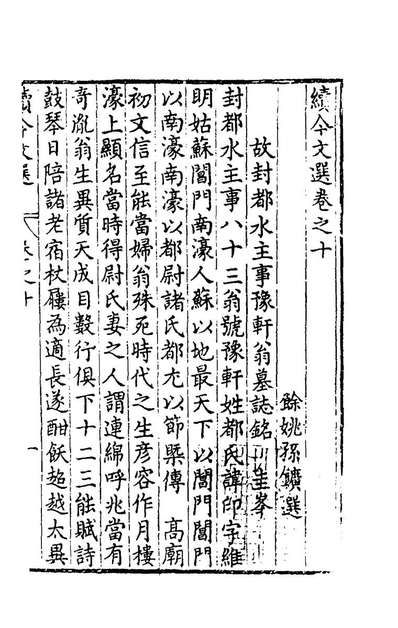 續今文選卷之十
餘姚孫鑛選
故封都水主事豫軒翁墓誌銘
封都水主事八十三翁號豫軒姓都氏諱卬字維
明姑蘇閶門南濠人蘇以地最天下以閶門閶門
以南濠南濠以都尉諸氏都尤以節槩傳 高廟
初文信至能當婦翁殊死時代之生彥容作月樓
濠上顯名當時得尉氏妻之人謂連綿呼兆當有
奇胤翁生異質天成目數行俱下十二三能賦詩
鼓琴日陪諸老宿杖屨為適長遂酣飫超越太異
續今文選
卷之十
一